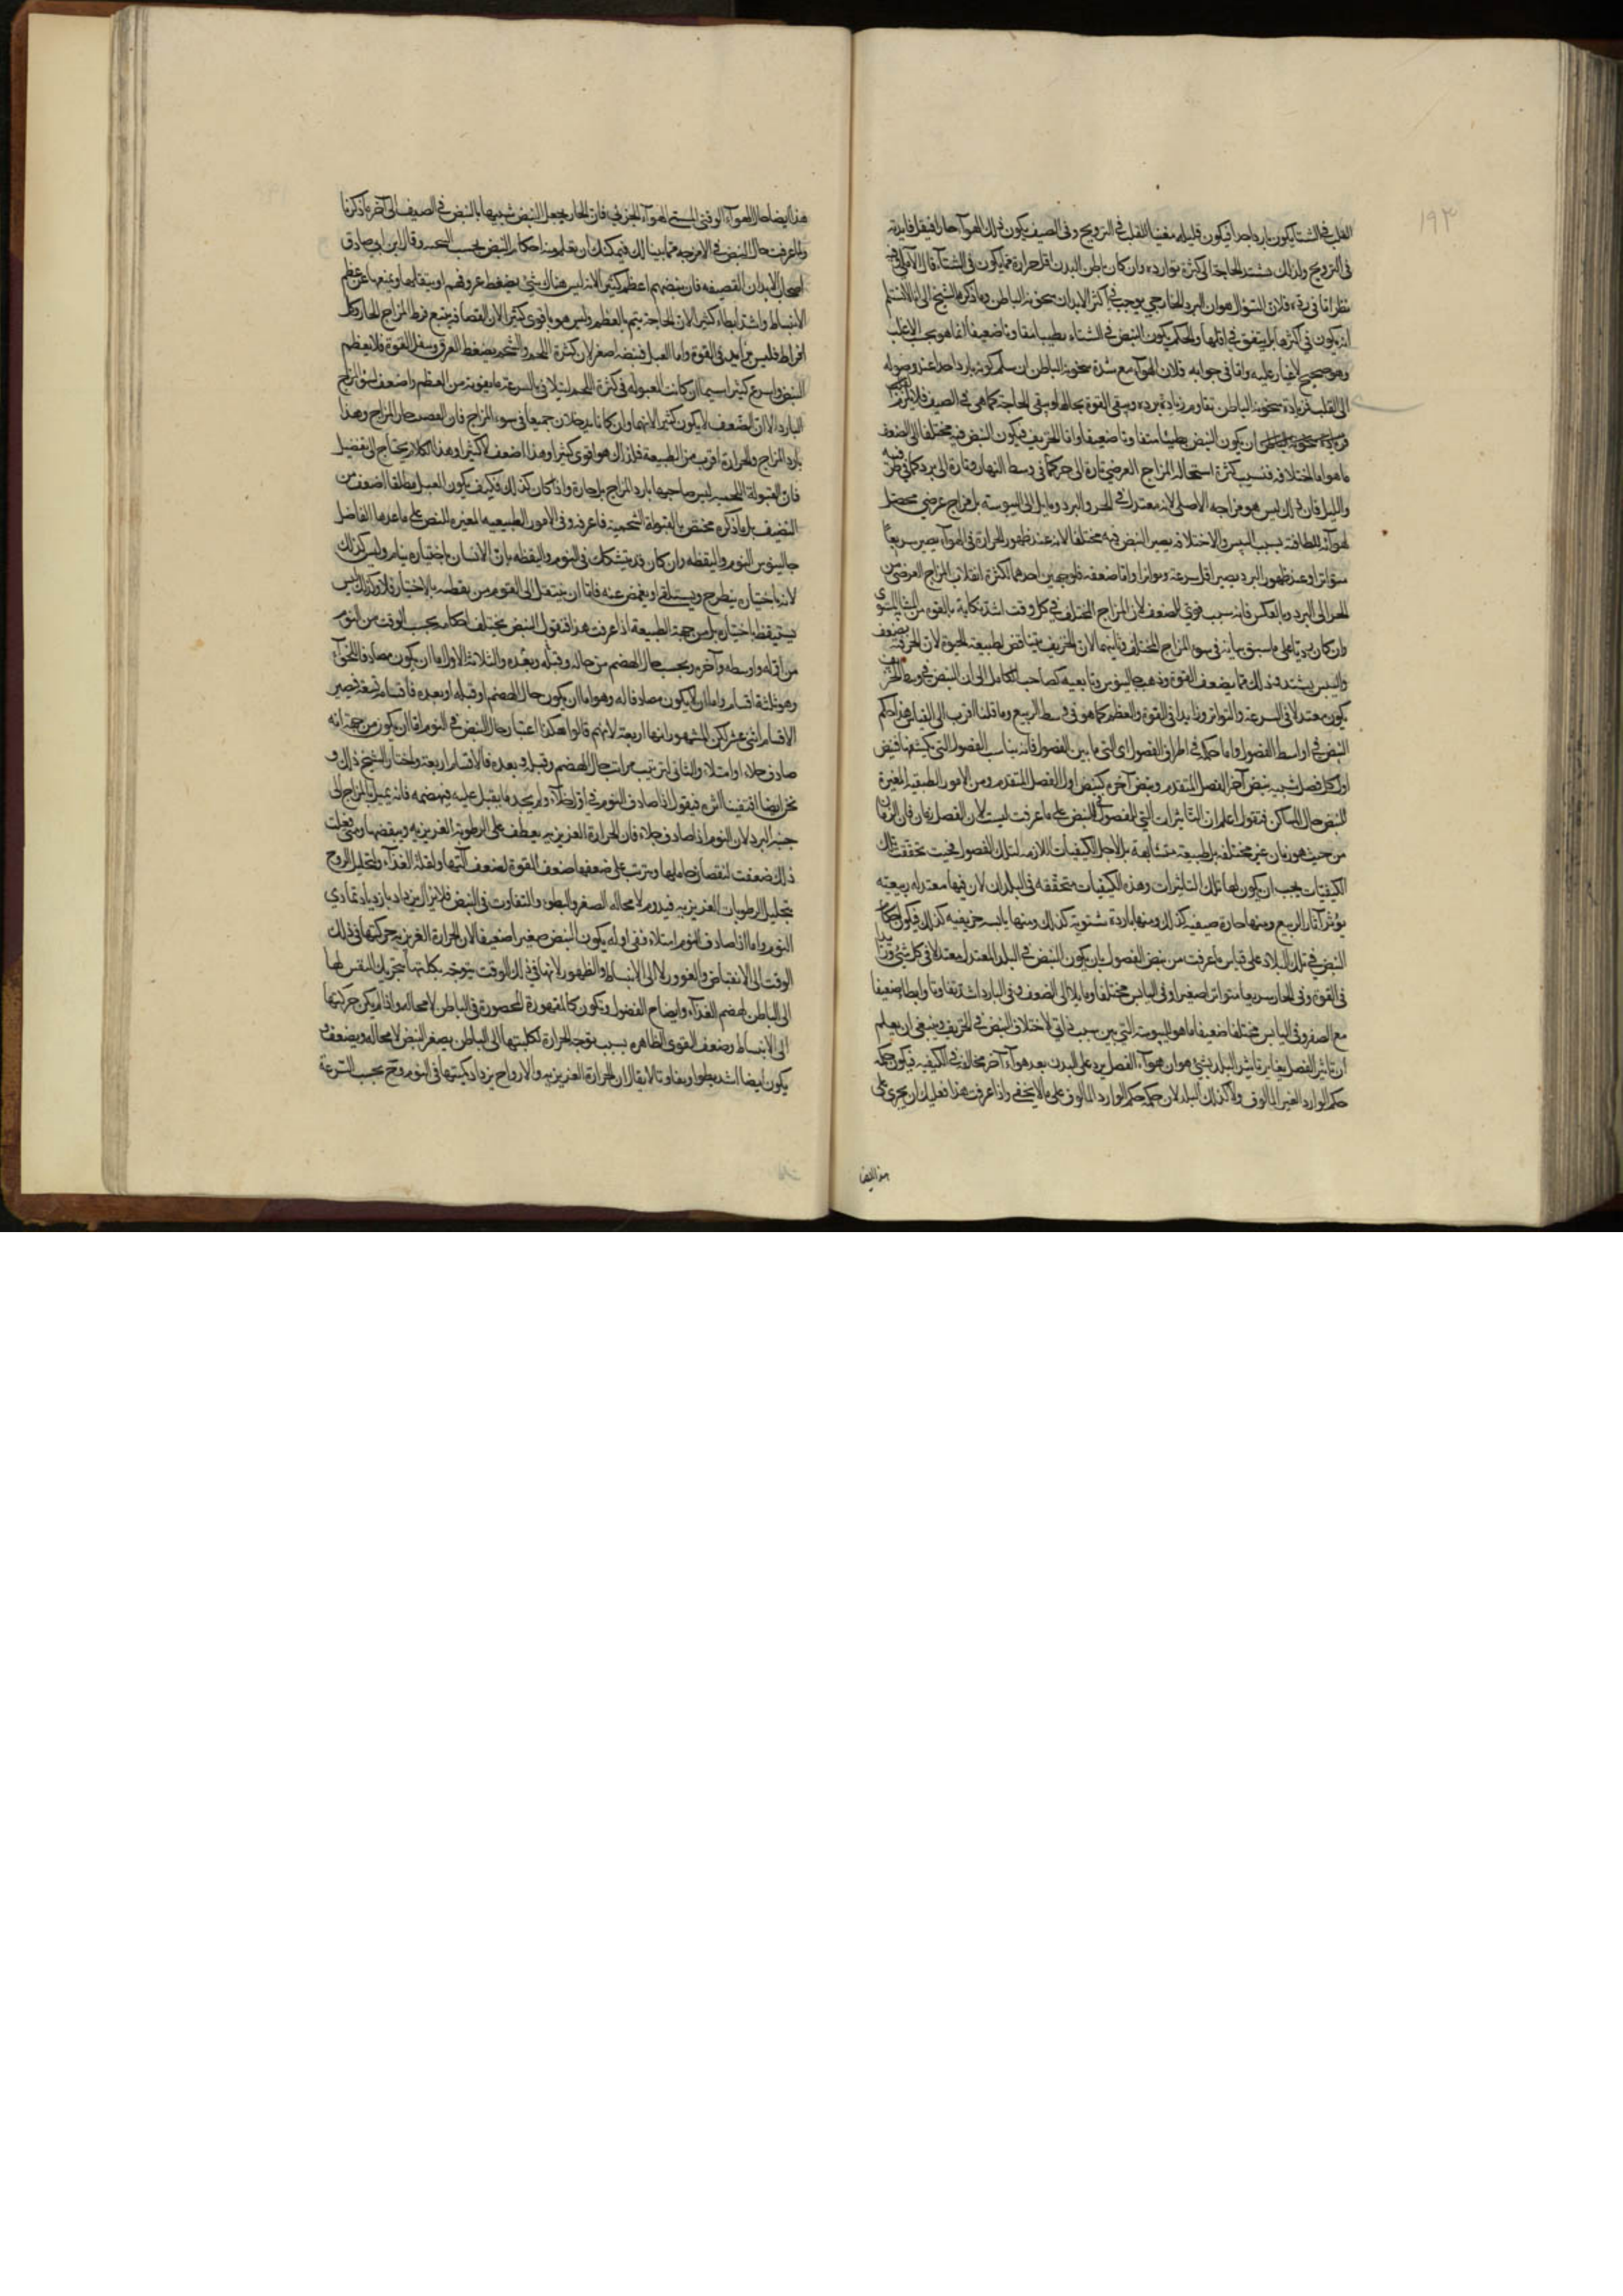 ١٩٣
القلب في الشتا يكون باردا جدا فيكون قليله مغنيا للقلب في الترويح وفي الصيف يكون ذلك الهوآء حارا فيقل فايدته
في الترويح ولذلك يشتد الحاجة الى كثرة توارده وان كان باطن البدن اقل حرارة مما يكون في الشتآء قال الآملي وفيه
نظر اما في رده فلان السؤال هو ان البرد الخارجي يوجب في اكثر الابدان سخونة الباطن وما ذكره الشيخ
انه يكون في اكثرها بل يتفق في اقلها والحكم بكون النبض في الشتاء بطيئا متفاوتا ضعيفا انما هو بحسب الاغلب
وهو صحيح لا غبار عليه واما في جوابه فلان الهوآء مع شدة سخونة الباطن ان سلم كونه باردا جدا عند وصوله
الى القلب فزيادة سخونة الباطن تقاوم زيادة برده وتبقى القوة بحالها وتبقى الحاجة كما هي في الصيف فلا يلزم
ان يكون النبض بطيئا متفاوتا ضعيفا واما الخريف فيكون النبض فيه مختلفا الى الضعف
ما هو اما اختلافه فبسبب كثرة استحالة المزاج العرضي تارة الى حر كما في وسط النهار وتارة الى برد كما في طرفيه
والليل فان ذلك ليس هو مزاجه الاصلي لانه معتدل في الحر والبرد ومايل الى اليبوسة بل مزاج عرضي محصل
لهوآئه للطافته بسبب اليبس والاختلافه يصير النبض فيه مختلفا لانه عند ظهور الحرارة في الهوآء يصير سريعا
متواترا وعند ظهور البرد يصير اقل سرعة وتواترا واما ضعفه فلوجهين احدهما لكثرة انقلاب المزاج العرضي من
الحر الى البرد وبالعكس فانه سبب قوي للضعف لان المزاج المختلف في كل وقت اشد نكاية بالقوة من الثابت المستوي
وان كان رديا على ما سبق بيانه في سوء المزاج المختلف وثانيهما لان الخريف يناقض لطبيعة الحيوة لان الحر فيه يضعف
واليبس يشتد وذلك مما يضعف القوة وذهب جالينوس وتابعيه كصاحب الكامل الى ان النبض في وسط الخريف
يكون معتدلا في السرعة والتواتر وزايدا في القوة والعظم كما هو في وسط الربيع وما قلنا اقرب الى القياس هذا حكم
النبض في اواسط الفصول واما حكمه في اطراف الفصول اي التي ما بين الفصول فانه يناسب الفصول التي تكتنفها فنبض
اول كل فصل شبيه بنبض آخر الفصل المتقدم ونبض آخره كنبض اول الفصل المتقدم ومن الامور الطبيعية المغيرة
للنبض حال المساكن فنقول اعلم ان التاثيرات التي للفصول في النبض على ما عرفت ليست لان الفصل زمان فان الزمان
من حيث هو زمان غير مختلفة بل طبيعة متشابهة بل لاجل الكيفيات اللازمه لتلك الفصول فحيث تحققت تلك
الكيفيات يجب ان يكون لها تلك التاثيرات وهذه الكيفيات متحققه في البلدان لان فيها معتدله ربيعيه
يؤثر آثار الربيع ومنها حارة صيفيه كذلك ومنها باردة شتويه كذلك ومنها يابسه خريفيه كذلك فيكون احكام
النبض في تلك البلاد على قياس ما عرفت من نبض الفصول بان يكون النبض في البلد المعتدل معتدلا في كل شئ وزايدا
في القوة وفي الحار سريعا متواترا صغيرا وفي اليابس مختلفا ومايلا الى الضعف وفي البارد اشد تفاوتا وابطا وضعيفا
مع الصغر وفي اليابس مختلفا ضعيفا ما هو لليبوسة التي بين سبب ذاتي لاختلاف النبض في الخريف وينبغي ان يعلم
ان تاثير الفصل يغاير تاثير البلد بشئ وهو ان هوآء الفصل يرد على البدن بعد هوآء آخر مخالف في الكيفيه فيكون حكمه
حكم الوارد الغير المالوف ولا كذلك البلد لان حكمه حكم الوارد المالوف على ما لا يخفى واذا عرفت هذا فعليك ان يجري على
هذا ايضا
هذا ايضا حال الهوآء الوقتي المسمى الهوآء الجزئي فان الحار يجعل النبض شبيها بالنبض في الصيف الى آخر ما ذكرنا
ولما عرفت حال النبض في الامزجه مما بينا لك فيمكنك ان تعلم منه احكام النبض بحسب السحنه وقال ابن ابي صادق
اصحاب الابدان القصيفه فان نبضهم اعظم كثيرا لانه ليس هناك شئ يضغط عروقهم او يثقلها ويمنعها عن عظم
الانبساط واشد ابطاء كثيرا لان الحاجة يتم بالعظم وليس هو باقوى كثيرا لان القصافه يتبع فرط المزاج الحار وكل
افراط فليس يزايد في القوة واما العبل فنبضه اصغر لان كثرة اللحم والشحم يضغط العرق ويثقل القوة فلا يعظم
النبض واسرع كثيرا سيما ان كانت العبوله في كثرة اللحم ليتلافى بالسرعة ما يفوته من العظم واضعف لسوء المزاج
البارد الا ان الضعف لا يكون كثيرا لانهما وان كانا يدخلان جميعا في سوء المزاج فان القصيف حار المزاج وهذا
بارد المزاج والحرارة اقرب من الطبيعة فلذلك هو اقوى كثيرا وهذا اضعف لا كثيرا وهذا الكلام يحتاج الى تفصيل
فان العبولة اللحميه ليس صاحبها بارد المزاج بل حاره واذا كان كذلك فكيف يكون العبل مطلقا اضعف من
القضيف بل ما ذكره مختص بالعبولة الشحمية فاعرفه وفي الامور الطبيعيه المغيره للنبض على ما عدها الفاضل
جالينوس النوم واليقظه وان كان قد يتشكك في النوم واليقظه بان الانسان باختياره ينام وليس كذلك
لانه باختياره ينطرح ويستلقي او يغمض عينه فاما ان ينتقل الى النوم من يقظته بالاختيار فلا وكذلك ليس
يستيقظ باختياره بل من جهة الطبيعة اذا عرفت هذا فنقول النبض يختلف احكامه بحسب الوقت من النوم
من اوله واوسطه وآخره وبحسب حال الهضم من حاله وقبله وبعده والثلاثة الاول اما ان يكون مصادفا للخوآء
وهو ثلاثة اقسام واما ان لا يكون مصادفا له وهو اما ان يكون حال الهضم او قبله او بعده فاقسامه تسعة فيصير
الاقسام اثنى عشر لكن المشهور انها اربعة لانهم قالوا هكذا اعتبار حال النبض في النوم اما ان يكون من جهة انه
صادف خلاء او امتلاء والثاني ان ترتب مراتب حال الهضم وقبله وبعده فالاقسام اربعة واختار الشيخ ذلك و
نحن ايضا اقتفينا اثره فنقول اذا صادف النوم في اوله خلآء ولم يجد ما يقبل عليه فيهضمه فانه يميل بالمزاج الى
جنبة البرد لان النوم اذا صادف خلاء فان الحرارة الغريزيه يعطف على الرطوبة الغريزيه وينقصها ومتى فعلت
ذلك ضعفت لنقصان حاملها ويترتب على ضعفها ضعف القوة لضعف آلتها ولقلة الغذآء ولتحليل الروح
بتحليل الرطوبات الغريزيه فيدوم لا محاله الصغر والبطوء والتفاوت في النبض فلا يزال يزداد بازدياد تمادي
النوم واما اذا صادف النوم امتلاء ففي اوله يكون النبض صغيرا ضعيفا لان الحرارة الغريزيه حركتها في ذلك
الوقت الى الانقباض والغوور لا الى الانبساط والظهور لانها في ذلك الوقت يتوجه بكليتها بتحريك النفس لها
الى الباطن لهضم الغذآء وانضاج الفضول ويكون كالمقهورة المحصورة في الباطن لا محاله واذا لم يكن حركتها
الى الانبساط وضعف القوى الظاهره بسبب توجه الحرارة بكليتها الى الباطن يصغر النبض لا محاله ويضعف و
يكون ايضا اشد بطوا وتفاوتا لا يقال ان الحرارة الغريزيه والارواح يزداد كميتها في النوم وح يجب السرعة